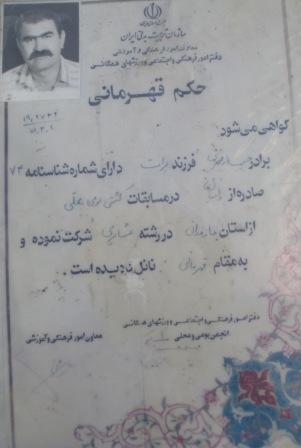 سازمان تربیت بدنی ایران
معاونت امور فرهنگی و آموزشی
دفتر امور فرهنگی و اجتماعی و ورزشهای همگانی
حکم قهرمانی
گواهی می‌شود
برادر فرزند دارای شماره شناسنامه ۷۳
صادره از در مسابقات کشتی محلی
از استان مازندران در رشته شرکت نموده و
به مقام قهرمانی نائل گردیده است.
دفتر امور فرهنگی و اجتماعی و ورزشهای همگانی
انجمن بومی و محلی
معاون امور فرهنگی و آموزشی